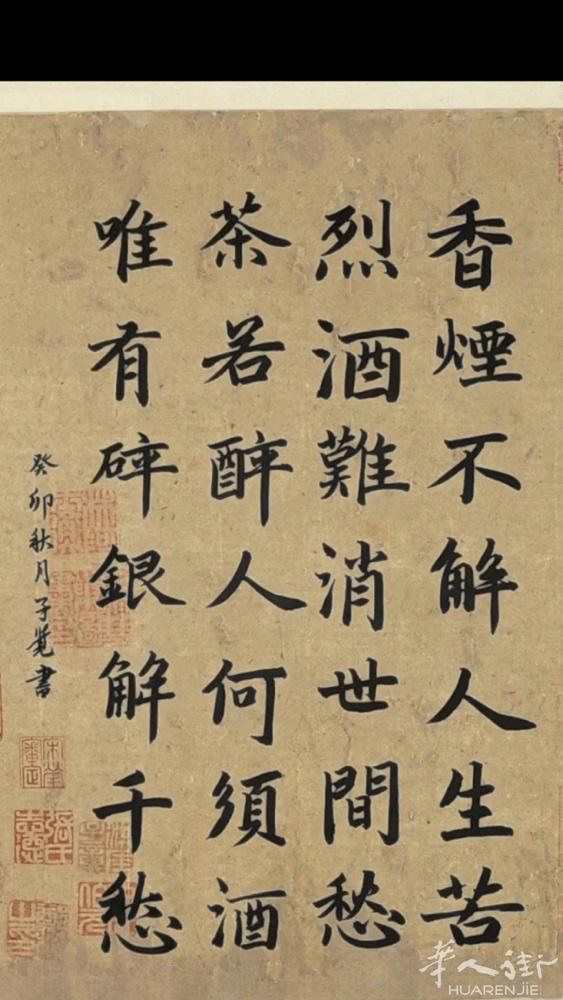 香煙不解人生苦
烈酒難消世間愁
茶若醉人何須酒
唯有碎銀解千愁
癸卯秋月子箢書
華人街
HUARENJIE